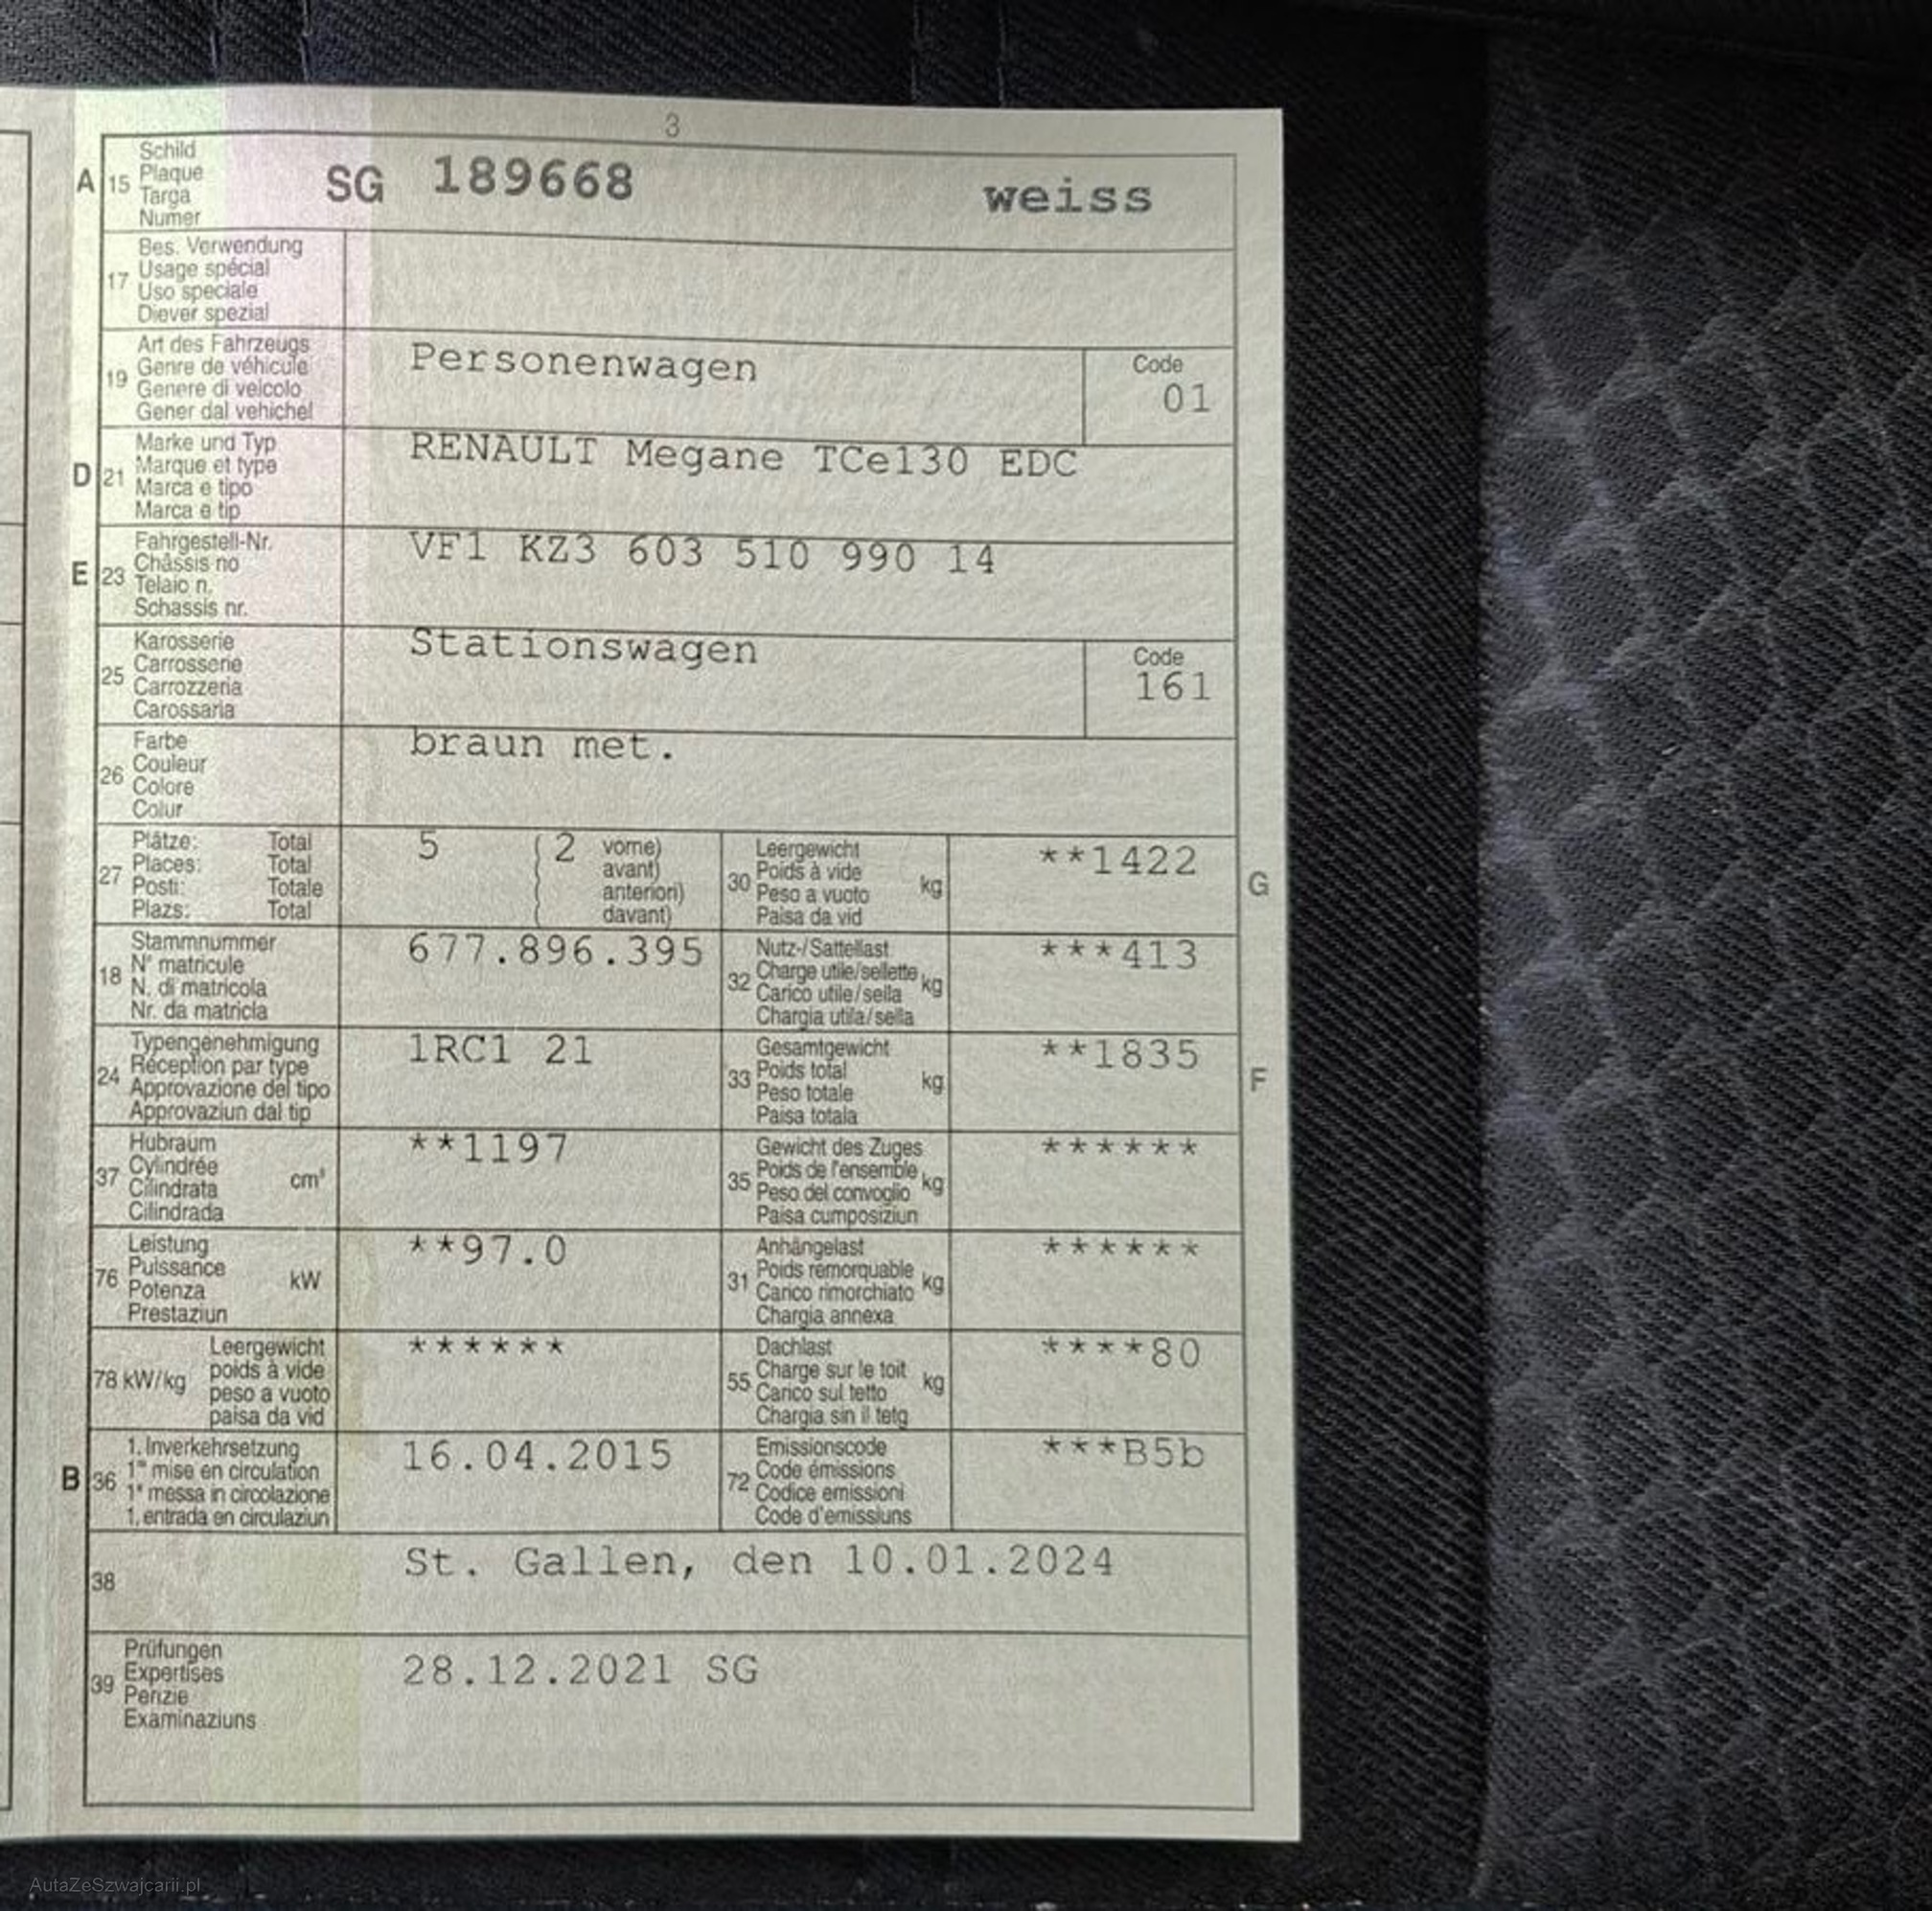 3
A 15 Schild SG 189668 weiss
Plaque
Targa
Numer
17 Bes. Verwendung
Usage spécial
Uso speciale
Diever spezial
19 Art des Fahrzeugs Personenwagen Code
Genre de véhicule 01
Genere di veicolo
Gener dal vehichel
D 21 Marke und Typ RENAULT Megane TCe130 EDC
Marque et type
Marca e tipo
Marca e tip
E 23 Fahrgestell-Nr. VF1 KZ3 603 510 990 14
Châssis no
Telaio n.
Schassis nr.
25 Karosserie Stationswagen Code
Carrosserie 161
Carrozzeria
Carossaria
26 Farbe braun met.
Couleur
Colore
Colur
27 Plätze: Total 5 ( 2 vorne) 30 Leergewicht **1422 G
Places: Total ( avant) Poids à vide kg
Posti: Totale ( anteriori) Peso a vuoto
Plazs: Total ( davant) Paisa da vid
18 Stammnummer 677.896.395 32 Nutz-/Sattellast ***413
N° matricule Charge utile/sellette kg
N. di matricola Carico utile/sella
Nr. da matricla Chargia utila/sella
24 Typengenehmigung 1RC1 21 33 Gesamtgewicht **1835 F
Réception par type Poids total kg
Approvazione del tipo Peso totale
Approvaziun dal tip Paisa totala
37 Hubraum **1197 35 Gewicht des Zuges ******
Cylindrée cm³ Poids de l'ensemble kg
Cilindrata Peso del convoglio
Cilindrada Paisa cumposiziun
76 Leistung **97.0 31 Anhängelast ******
Puissance kW Poids remorquable kg
Potenza Carico rimorchiato
Prestaziun Chargia annexa
78 kW/kg Leergewicht ****** 55 Dachlast ****80
poids à vide Charge sur le toit kg
peso a vuoto Carico sul tetto
paisa da vid Chargia sin il tetg
B 36 1. Inverkehrsetzung 16.04.2015 72 Emissionscode ***B5b
1re mise en circulation Code émissions
1a messa in circolazione Codice emissioni
1. entrada en circulaziun Code d'emissiuns
38 St. Gallen, den 10.01.2024
39 Prüfungen 28.12.2021 SG
Expertises
Perizie
Examinaziuns
AutaZeSzwajcarii.pl